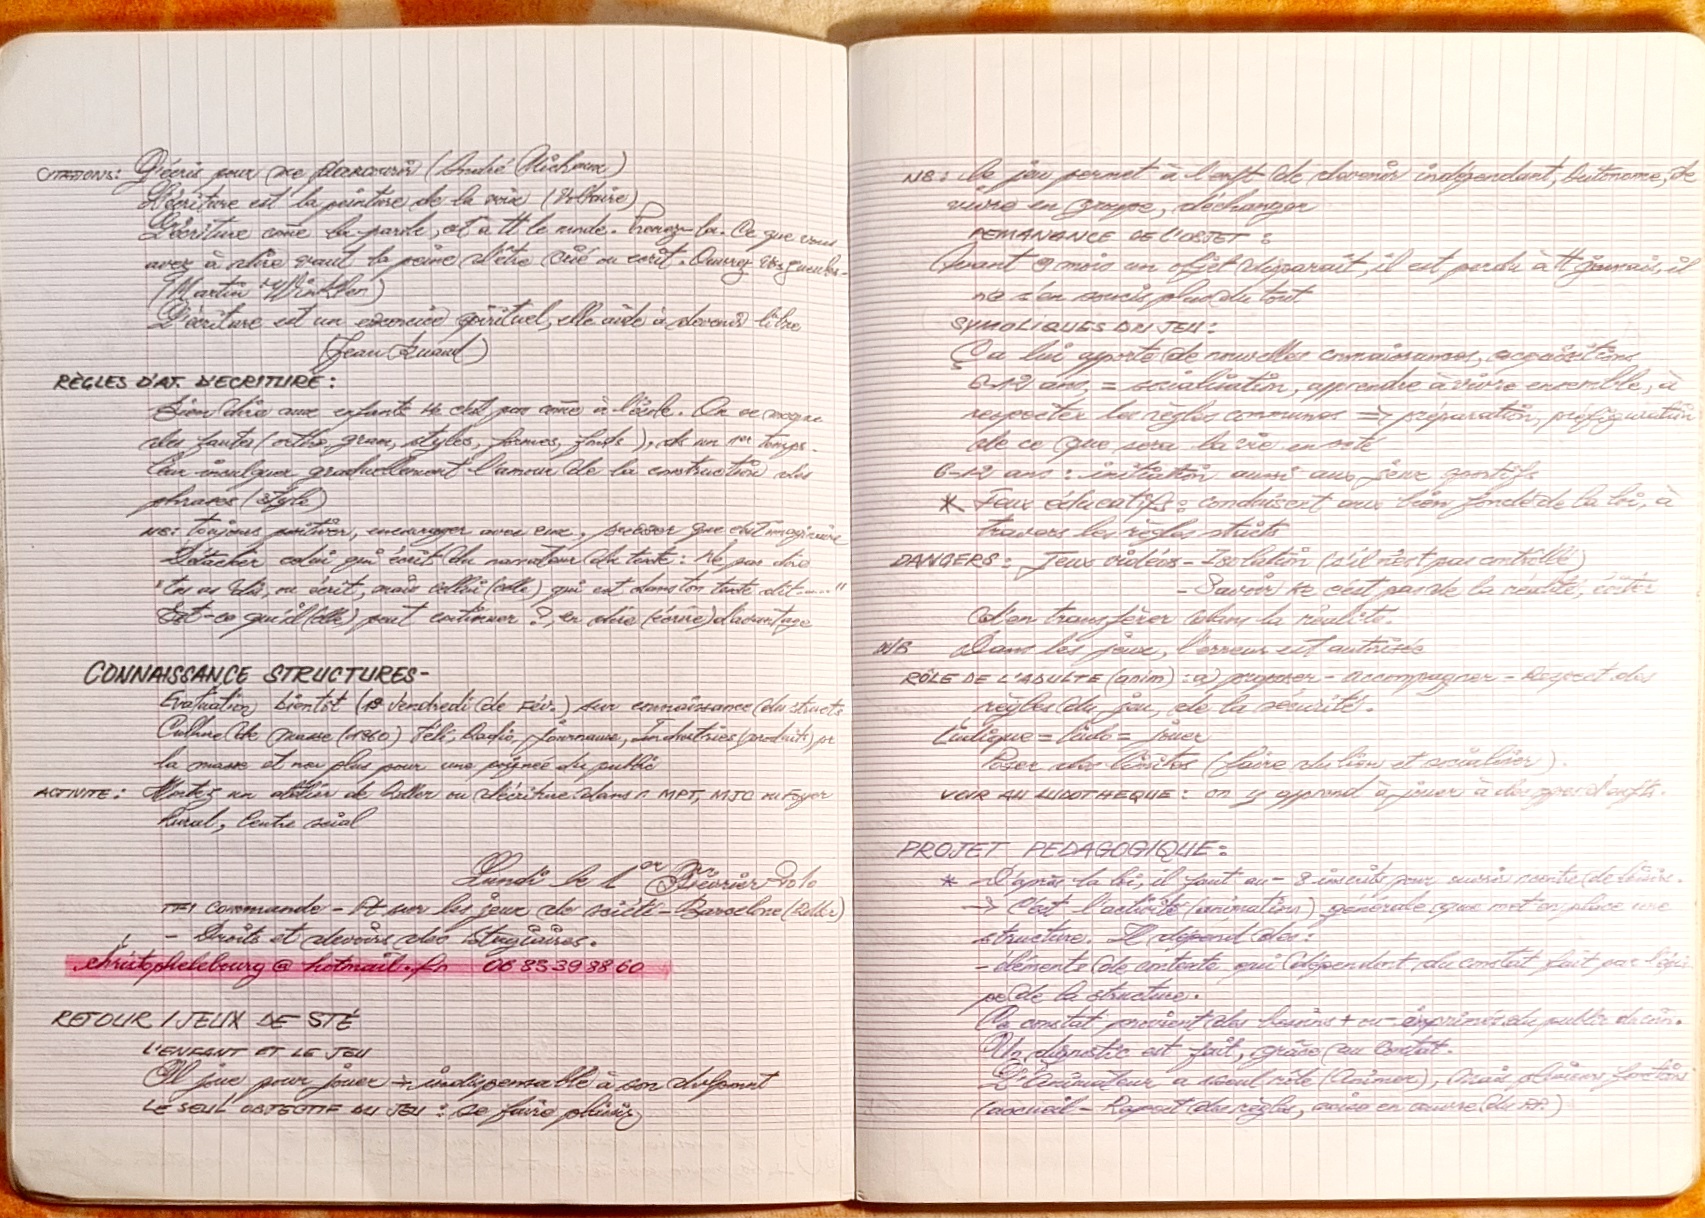 CITATIONS: J'écris pour me parcourir (André Michaux)
L'écriture est la peinture de la voix (Voltaire)
L'écriture come la parole, est à tt le monde. Prenez-la. Ce que vous
avez à dire vaut la peine d'être crié ou écrit. Ouvrez vos gueules-
(Martin Winkler)
L'écriture est un exercice spirituel, elle aide à devenir libre
(Jean
RÈGLES D'AT. D'ECRITURE:
Bien dire aux enfants ke c'est pas come à l'école. On se moque
des fautes (ortho, gram, styles, formes, fonds), ds un 1er temps.
leur inculquer graduellement l'amour de la construction des
phrases (style)
NB: toujours positiver, encourager avec eux, que
Détacher celui qui écrit du narrateur du texte: Ne pas dire
"tu as dis, ou écrit, mais cellui (celle) qui est dans ton texte dit....."
Est-ce qu'il (elle) peut continuer ?, en dire (écrire) d'avantage
CONNAISSANCE STRUCTURES-
Evaluation bientôt (vendredi de Fév.) sur connaissance du
Culture de masse (1960) Télé, Radio, Journaux, Industries (produit) pr
la masse et non plus pour une poignée du public
ACTIVITE: Montez un atelier de Roller ou d'écriture dans MPT, MJC ou Foyer
Rural, Centre social
Lundi le 1er Février 2010
commande - Pt sur les jeux de société - Barcelone (Roller)
- Droits et devoirs des stagiaires.
christophelebourg@hotmail.fr 06 83 39 38 60
RETOUR / JEUX DE STÉ
L'ENFANT ET LE JEU
Il joue pour jouer → indispensable à son dvlpmnt
LE SEUL OBJECTIF DU JEU: se faire plaisir
NB: Le jeu permet à l'enft de devenir indépendant, autonome, de
vivre en groupe, d'echanger
PEMANANCE DE L'OBJET:
Avant 9 mois un objet disparait, il est perdu à tt jamais, il
ne s'en soucis plus du tout
SYMOLIQUES DU JEU:
Ça lui apporte de nouvelles connaissances, acquisitions
6-12 ans, = socialisation, apprendre à vivre ensemble, à
respecter les règles communes => préparation, préfiguration
de ce que sera la vie en sté
6-12 ans: initiation aussi aux jeux sportifs
* Jeux éducatifs: conduisent aux bien fondé de la loi, à
travers les règles stricts
DANGERS: Jeux vidéos - Isolation (s'il n'est pas contrôlé)
- Savoir ke c'est pas de la réalité, éviter
d'en transférer dans la réalité.
N/B Dans les jeux, l'erreur est autorisée
RÔLE DE L'ADULTE (anim): à proposer - accompagner - Respect des
règles du jeu, de la sécurité.
Ludique = ludo = jouer
Poser des limites (faire du lien et socialiser).
VOIR AU LUDOTHEQUE: on y apprend à jouer à des d'enfts.
PROJET PEDAGOGIQUE:
* D'après la loi, il faut au - 8 inscrits pour centre de loisirs.
-> C'est l'activité (animation) générale que met en place une
structure. Il dépend des:
- éléments de contexte qui dépendent du constat fait par l'équi-
pe de la structure.
Ce constat provient des besoins + ou - exprimés du public
Un dignostic est fait, grâce au constat.
L'animateur a seul rôle (Animer), mais plusieurs
(accueil - Rappel des règles, mise en œuvre du PP.)